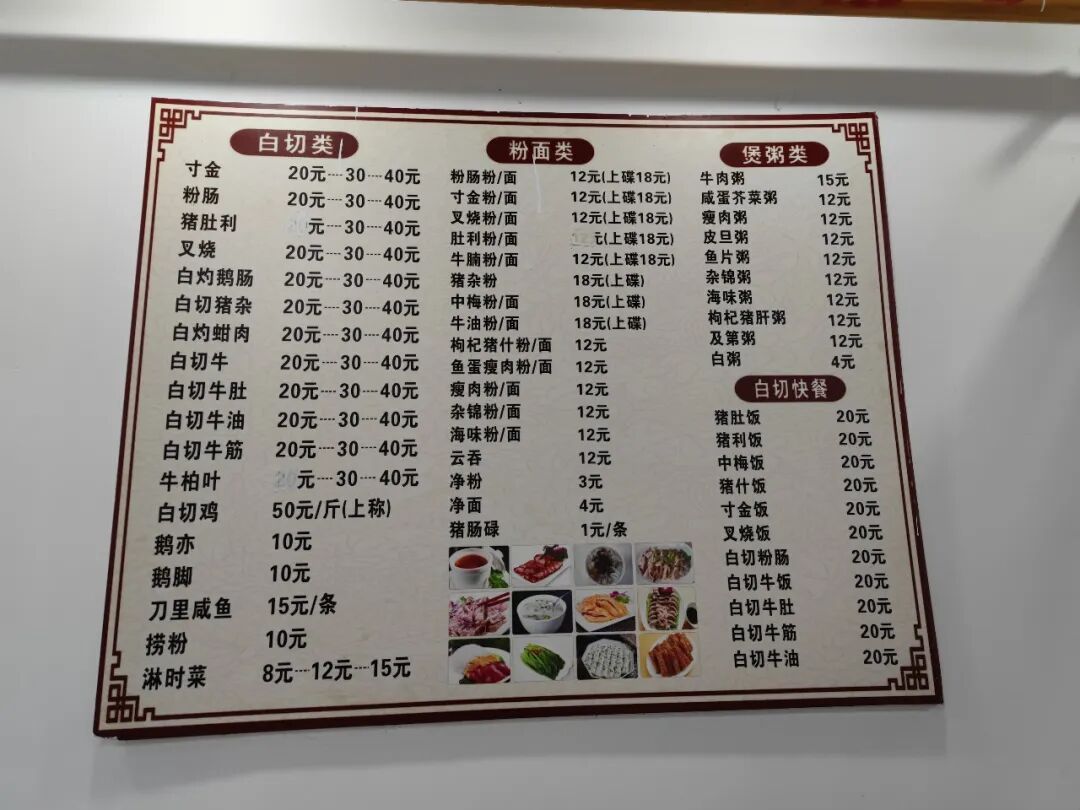 白切类
寸金 20元---30---40元
粉肠 20元---30---40元
猪肚利 元---30---40元
叉烧 20元---30---40元
白灼鹅肠 20元---30---40元
白切猪杂 20元---30---40元
白灼蚶肉 20元---30---40元
白切牛 20元---30---40元
白切牛肚 20元---30---40元
白切牛油 20元---30---40元
白切牛筋 20元---30---40元
牛柏叶 20元---30---40元
白切鸡 50元/斤(上称)
鹅亦 10元
鹅脚 10元
刀里咸鱼 15元/条
捞粉 10元
淋时菜 8元---12元---15元
粉面类
粉肠粉/面 12元(上碟18元)
寸金粉/面 12元(上碟18元)
叉烧粉/面 12元(上碟18元)
肚利粉/面 12元(上碟18元)
牛腩粉/面 12元(上碟18元)
猪杂粉 18元(上碟)
中梅粉/面 18元(上碟)
牛油粉/面 18元(上碟)
枸杞猪什粉/面 12元
鱼蛋瘦肉粉/面 12元
瘦肉粉/面 12元
杂锦粉/面 12元
海味粉/面 12元
云吞 12元
净粉 3元
净面 4元
猪肠碌 1元/条
煲粥类
牛肉粥 15元
咸蛋芥菜粥 12元
瘦肉粥 12元
皮旦粥 12元
鱼片粥 12元
杂锦粥 12元
海味粥 12元
枸杞猪肝粥 12元
及第粥 12元
白粥 4元
白切快餐
猪肚饭 20元
猪利饭 20元
中梅饭 20元
猪什饭 20元
寸金饭 20元
叉烧饭 20元
白切粉肠 20元
白切牛饭 20元
白切牛肚 20元
白切牛筋 20元
白切牛油 20元